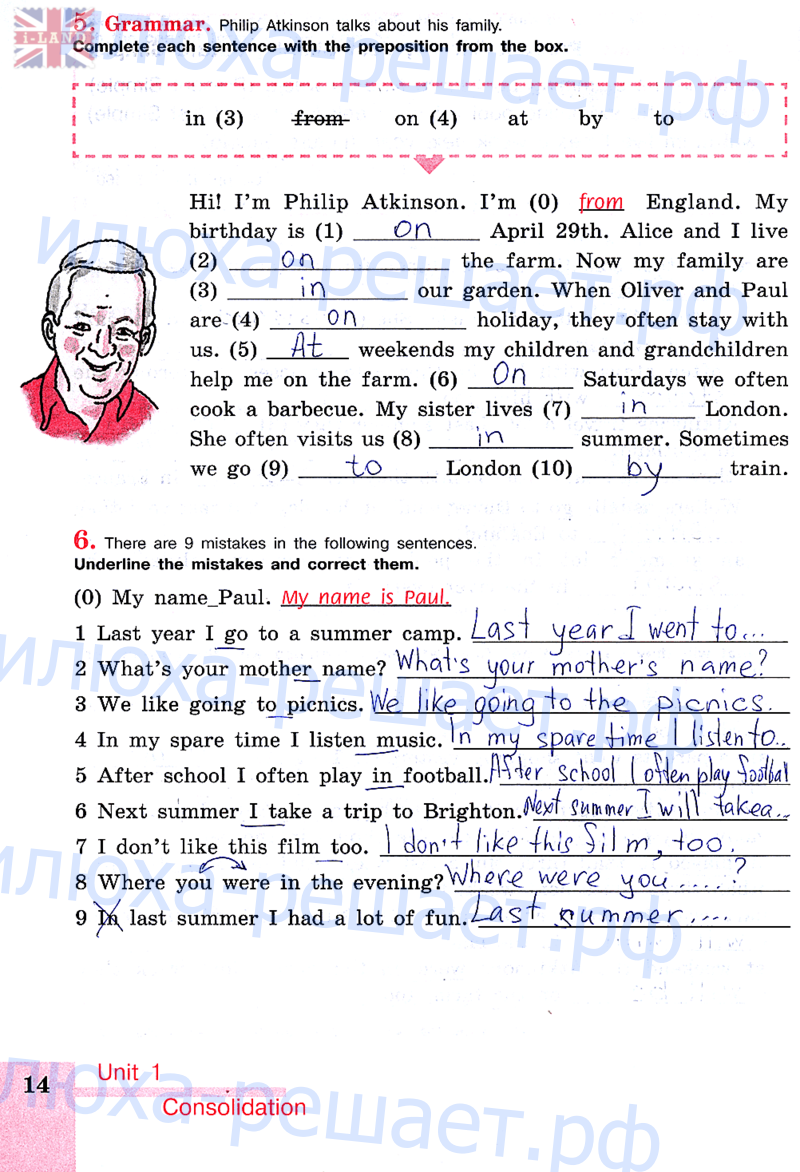 5. Grammar. Philip Atkinson talks about his family.
i-LAND
Complete each sentence with the preposition from the box.
in (3) from on (4) at by to
Hi! I'm Philip Atkinson. I'm (0) from England. My
birthday is (1) on April 29th. Alice and I live
(2) on the farm. Now my family are
(3) in our garden. When Oliver and Paul
are (4) on holiday, they often stay with
us. (5) At weekends my children and grandchildren
help me on the farm. (6) On Saturdays we often
cook a barbecue. My sister lives (7) in London.
She often visits us (8) in summer. Sometimes
we go (9) to London (10) by train.
6. There are 9 mistakes in the following sentences.
Underline the mistakes and correct them.
(0) My name_Paul. My name is Paul.
1 Last year I go to a summer camp. Last year I went to...
2 What's your mother name? What's your mother's name?
3 We like going to picnics. We like going to the picnics.
4 In my spare time I listen music. In my spare time I listen to..
5 After school I often play in football. After school I often play football
6 Next summer I take a trip to Brighton. Next summer I will take a...
7 I don't like this film too. I don't like this film, too.
8 Where you were in the evening? Where were you ....?
9 In last summer I had a lot of fun. Last summer....
14 Unit 1
Consolidation
илюха-решает.рф
илюха-решает.рф
илюха-решает.рф
илюха-решает.рф
илюха-решает.рф